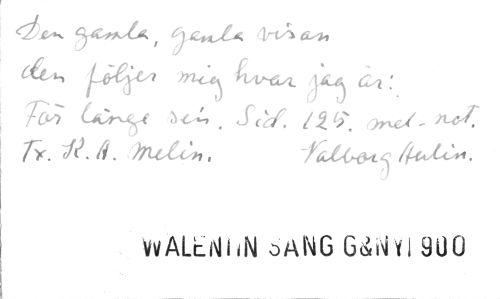 Den gamla, gamla visan
den följer mig hvar jag är:
För länge sen. Sid. 125. mel-not.
Tx. K. A. Melin. Valborg Aulin.
WALENTIN SANG G&NYT 900